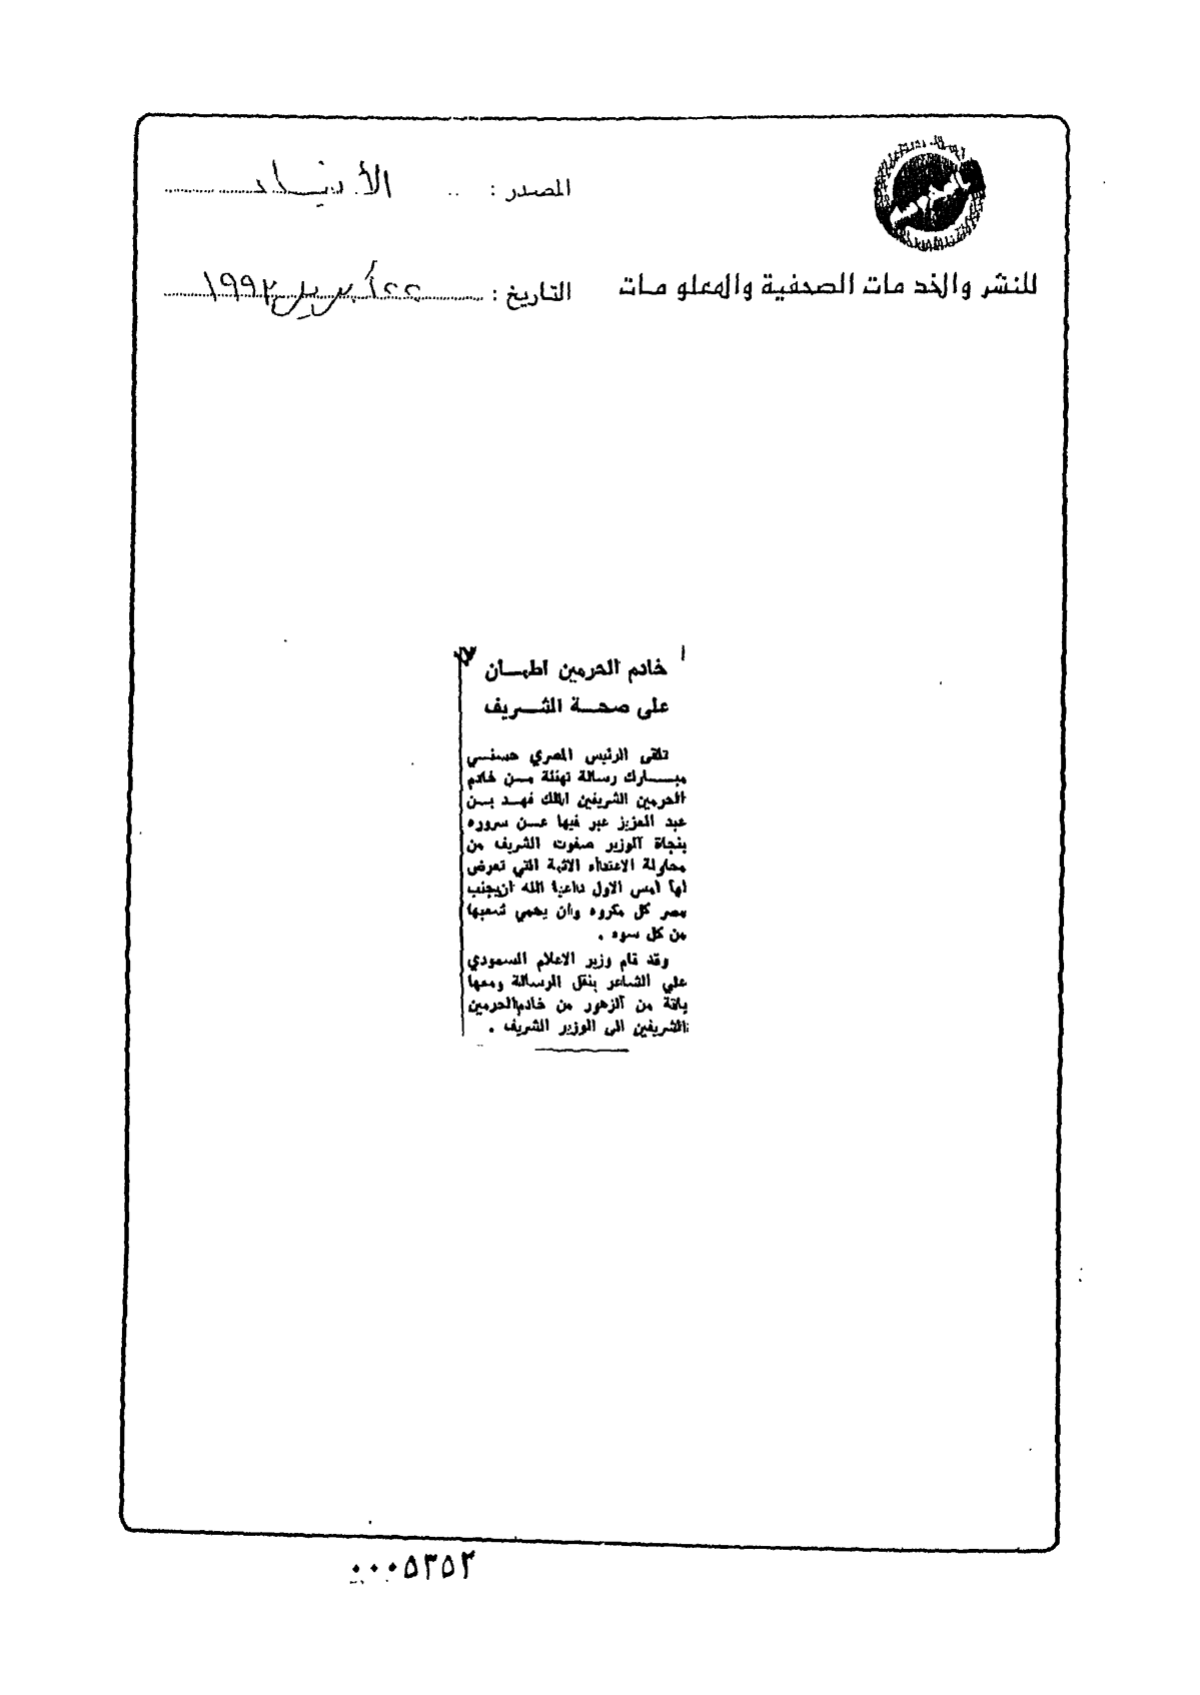 المصدر : الأنباء
للنشر والخدمات الصحفية والمعلومات
التاريخ : ٢٢ أبريل ١٩٩٣
خادم الحرمين اطمـــان
على صحـــة الشـــريف
تلقى الرئيس المصري حسنـي
مبـــارك رسالة تهنئة مــن خادم
الحرمين الشريفين الملك فهــد بــن
عبد العزيز عبر فيها عــن سروره
بنجاة الوزير صفوت الشريف من
محاولة الاعتداء الاثمة التي تعرض
لها امس الاول داعيا الله ان يجنب
مصر كل مكروه وان يحمي شعبها
من كل سوء .
وقد قام وزير الاعلام السعودي
علي الشاعر بنقل الرسالة ومعها
باقة من الزهور من خادم الحرمين
الشريفين الى الوزير الشريف .
٠٠٠٥٣٥٣